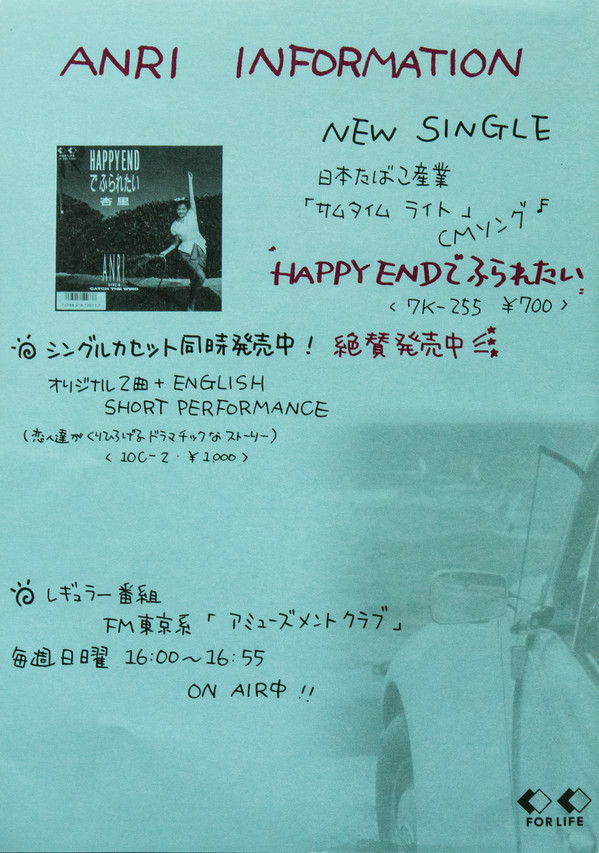 ANRI INFORMATION
NEW SINGLE
日本たばこ産業
「サムタイム ライト」
CMソング♪
FOR LIFE
HAPPY END
でふられたい
杏里
ANRI
CATCH THE WIND
"HAPPY ENDでふられたい"
< 7K-255 ¥700 >
シングルカセット同時発売中! 絶賛発売中
オリジナル2曲 + ENGLISH
SHORT PERFORMANCE
(恋人達がくりひろげるドラマチックなストーリー)
< 10C-2 · ¥1,000 >
レギュラー番組
FM東京系「アミューズメントクラブ」
毎週日曜 16:00〜16:55
ON AIR中 !!
FOR LIFE